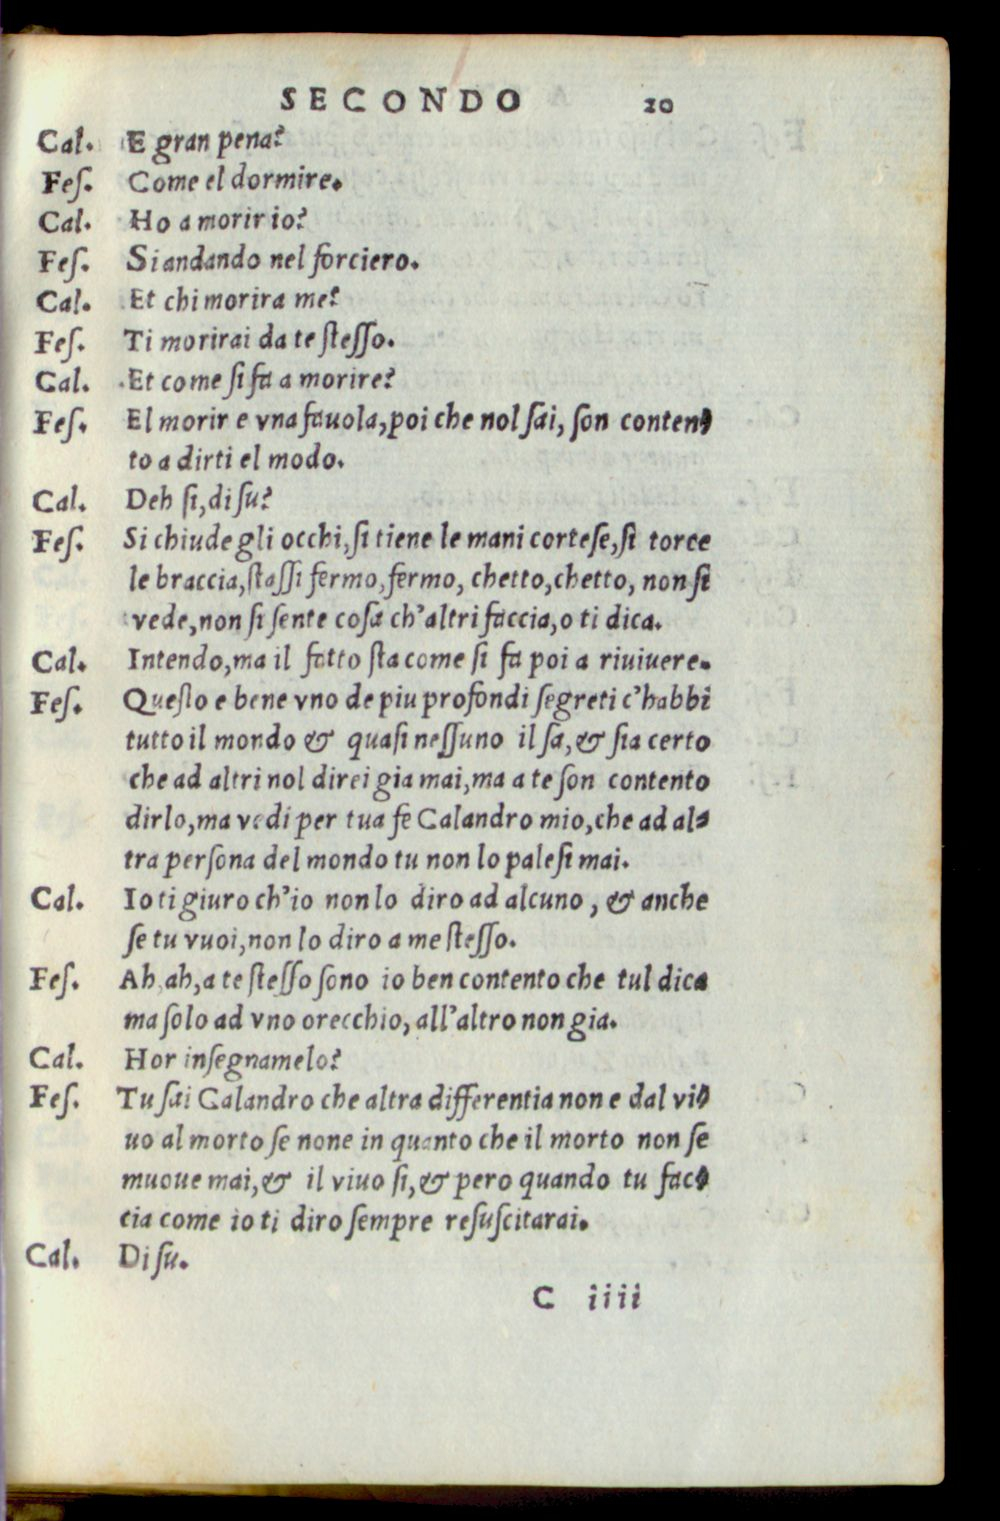 SECONDO 20
Cal. E gran pena?
Feſ. Come el dormire.
Cal. Ho a morir io?
Feſ. Si andando nel forciero.
Cal. Et chi morira me?
Feſ. Ti morirai da te ſteſſo.
Cal. Et come ſi fa a morire?
Feſ. El morir e vna fauola, poi che nol ſai, ſon conten-
to a dirti el modo.
Cal. Deh ſi, di ſu?
Feſ. Si chiude gli occhi, ſi tiene le mani corteſe, ſi torce
le braccia, ſtaſſi fermo, fermo, chetto, chetto, non ſi
vede, non ſi ſente coſa ch'altri faccia, o ti dica.
Cal. Intendo, ma il fatto ſta come ſi fa poi a riuiuere.
Feſ. Queſto e bene vno de piu profondi ſegreti c'habbi
tutto il mondo & quaſi neſſuno il ſa, & ſia certo
che ad altri nol direi gia mai, ma a te ſon contento
dirlo, ma vedi per tua fe Calandro mio, che ad al-
tra perſona del mondo tu non lo paleſi mai.
Cal. Io ti giuro ch'io non lo diro ad alcuno, & anche
ſe tu vuoi, non lo diro a me ſteſſo.
Feſ. Ah, ah, a te ſteſſo ſono io ben contento che tul dica
ma ſolo ad vno orecchio, all'altro non gia.
Cal. Hor inſegnamelo?
Feſ. Tu ſai Calandro che altra differentia non e dal vi-
uo al morto ſe none in quanto che il morto non ſe
muoue mai, & il viuo ſi, & pero quando tu fac-
cia come io ti diro ſempre reſuſcitarai.
Cal. Di ſu.
C iiii